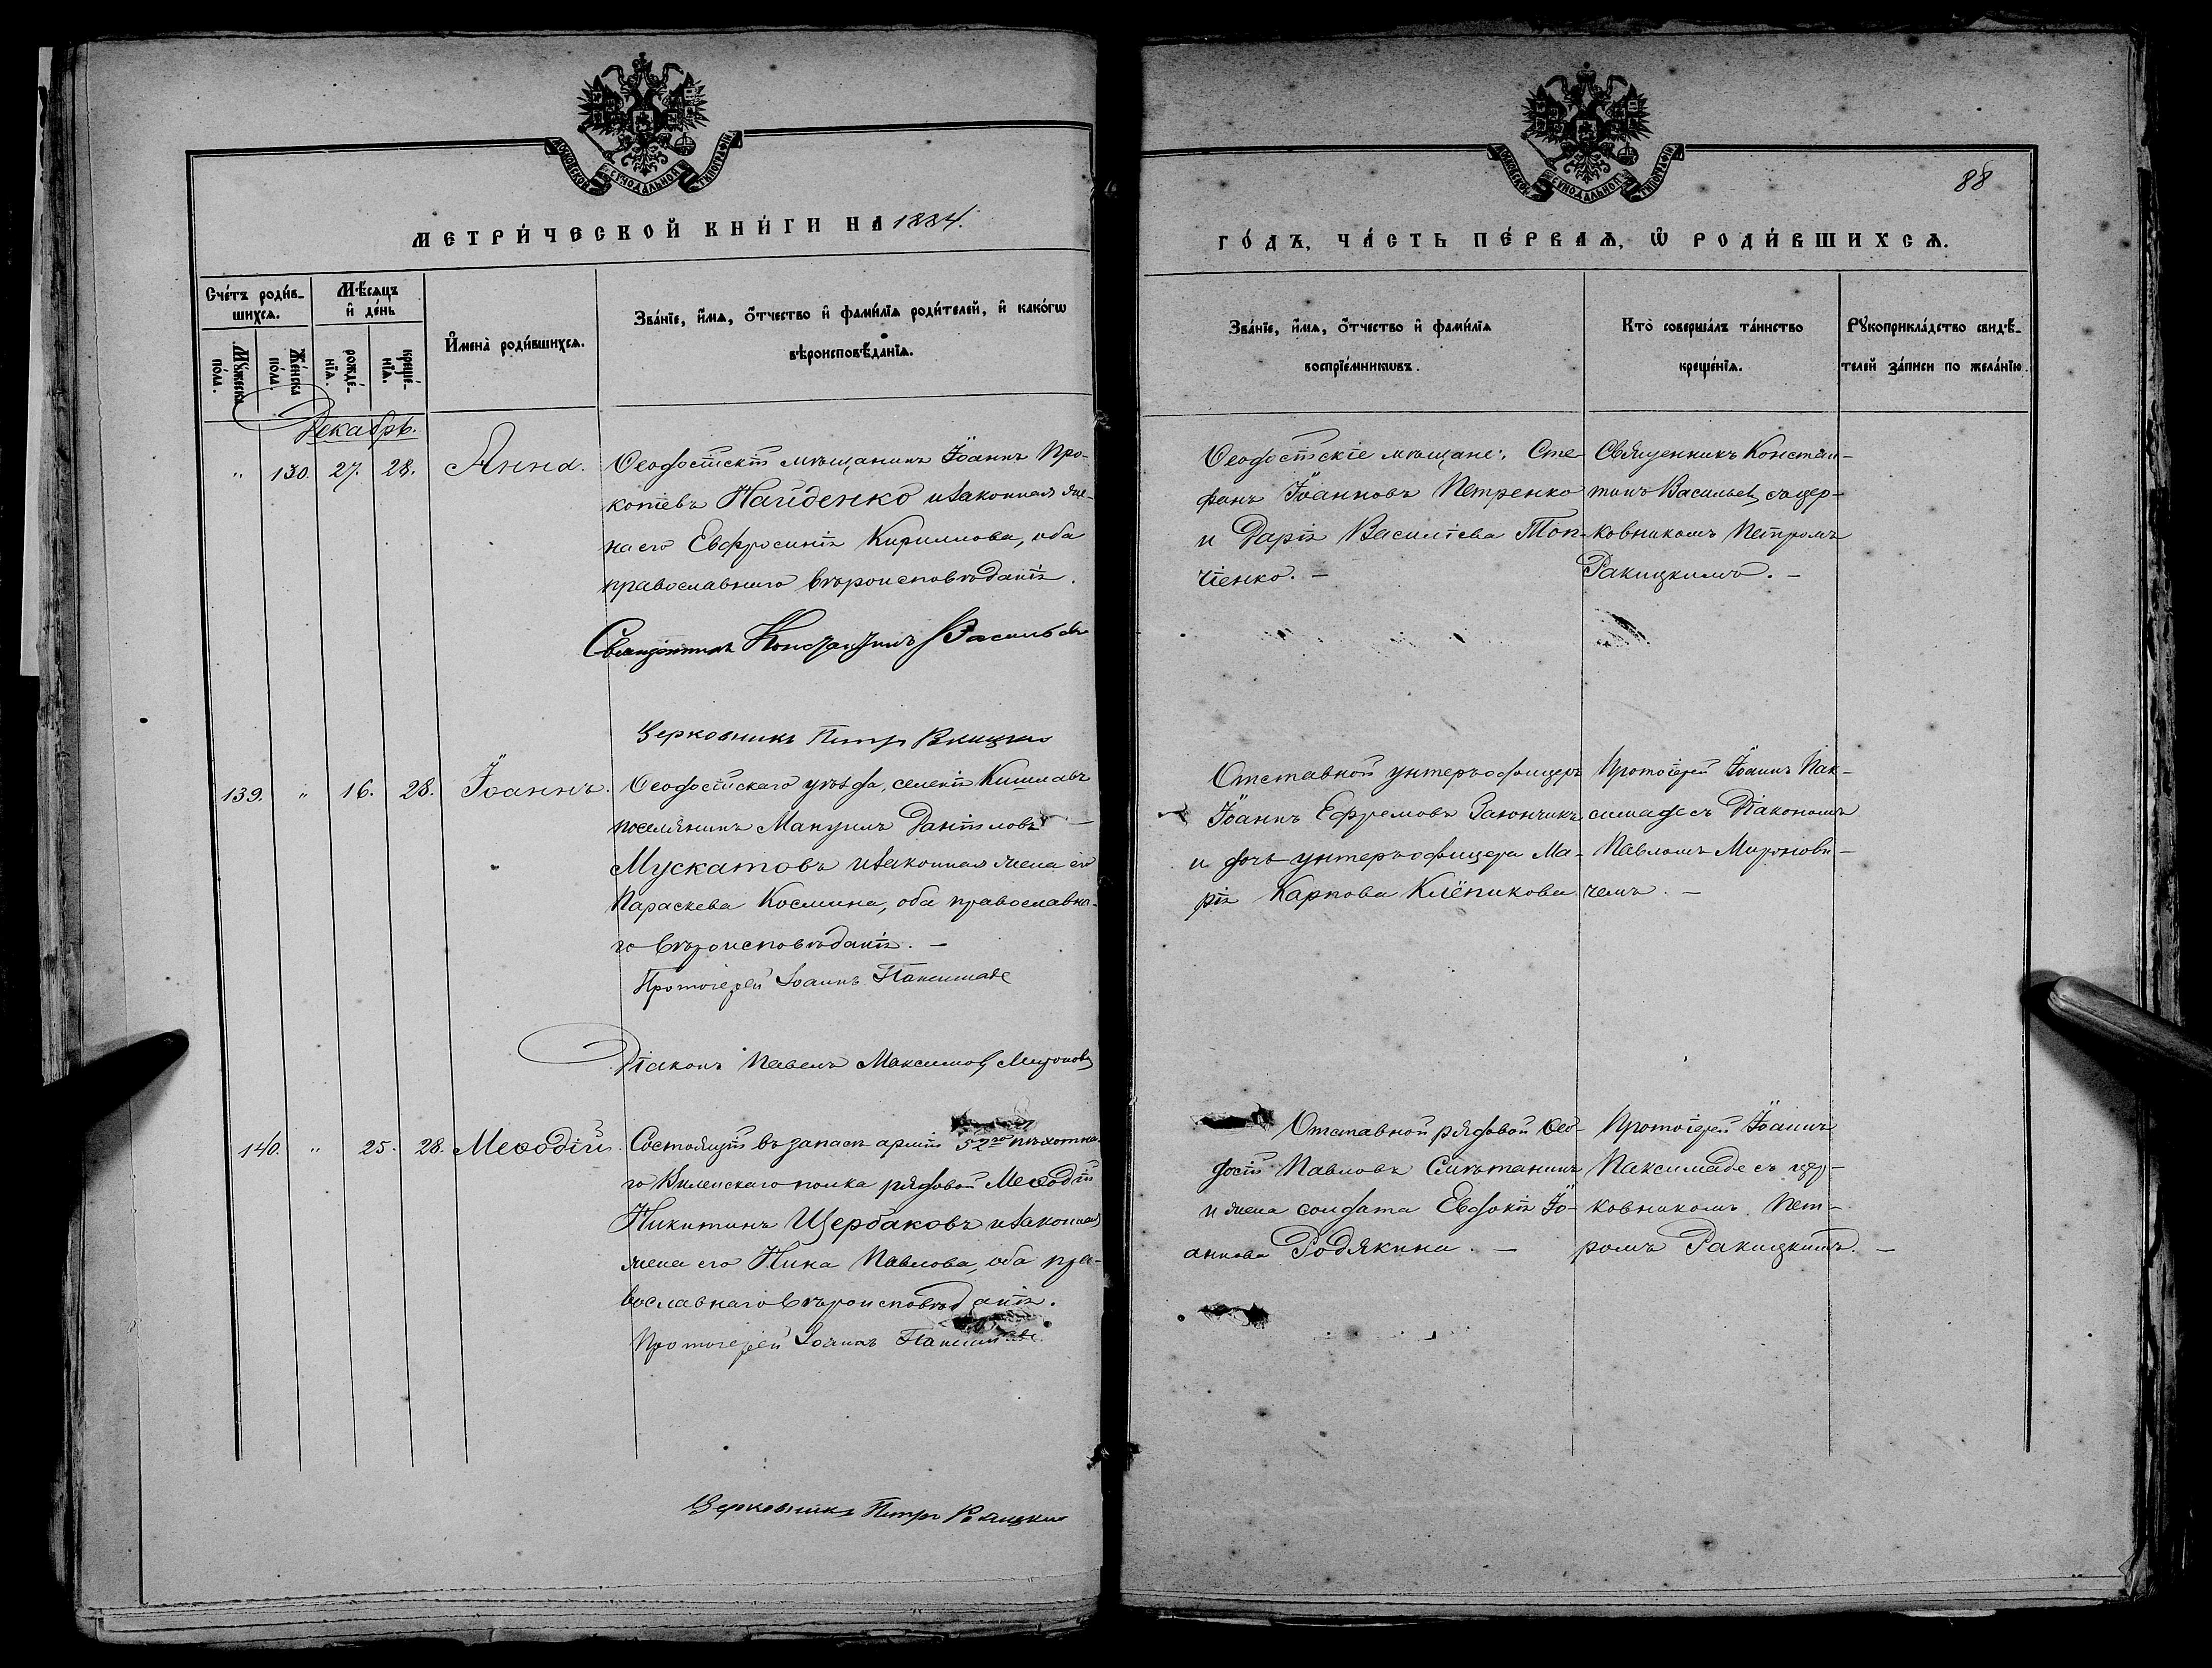 МОСКОВСКОЙ СѴНОДАЛЬНОЙ ТИПОГРАФІИ
МОСКОВСКОЙ СѴНОДАЛЬНОЙ ТИПОГРАФІИ
88
МЕТРИ́ЧЕСКОЙ КНИ́ГИ НА 1884.
ГО́ДЪ, ЧА́СТЬ ПЕ́РВАѦ, Ѡ҆ РОДИ́ВШИХСѦ.
Сче́тъ роди́в-
шихсѧ.
Мꙋ́жеска
по́ла.
Же́нска
по́ла.
Мѣ́сѧцъ
и҆ де́нь
рожде́-
нїѧ.
креще́-
нїѧ.
И҆мена̀ роди́вшихсѧ.
Зва́нїе, и҆́мѧ, ѻ҆́тчество и҆ фами́лїѧ роди́телей, и҆ како́гѡ
вѣроисповѣ́данїѧ.
Зва́нїе, и҆́мѧ, ѻ҆́тчество и҆ фами́лїѧ
воспрїе́мникѡвъ.
Кто̀ соверша́лъ та́инство
креще́нїѧ.
Рꙋкоприкла́дство свидѣ́-
телей за́писи по жела́нїю.
Декабрь.
" 130. 27. 28. Анна. Ѳеодосійскій мѣщанинъ Іоаннъ Про-
копіевъ Найденко и законная же-
на его Евфросинія Кириллова, оба
православнаго вѣроисповѣданія.
Священникъ Константинъ Васильевъ
Церковникъ Петръ Ракицкій
Ѳеодосійскіе мѣщане: Сте-
фанъ Іоанновъ Петренко
и Дарія Василіева Топ-
чіенко. –
Священникъ Констан-
тинъ Васильевъ съ цер-
ковникомъ Петромъ
Ракицкимъ. –
139. " 16. 28. Іоаннъ. Ѳеодосійскаго уѣзда, селенія Кишлавъ
поселянинъ Мануилъ Даніиловъ –
Мускатовъ и законная жена его
Параскева Космина, оба православна-
го вѣроисповѣданія. –
Протоіерей Іоаннъ Паксимаде
Діаконъ Павелъ Максимовъ Миронов
Отставной унтеръ-офицеръ
Іоаннъ Ефремовъ Заюнчикъ
и дочь унтеръ-офицера Ма-
рія Карпова Клёпикова
Протоіерей Іоаннъ Пак-
симаде съ Діакономъ
Павломъ Миронови-
чемъ. –
140. " 25. 28. Меѳодій. Состоящій въ запасѣ арміи 52го пѣхотна-
го Виленскаго полка рядовой Меѳодій
Никитинъ Щербаковъ и законная
жена его Нина Павлова, оба пра-
вославнаго вѣроисповѣданія.
Протоіерей Іоаннъ Паксимаде
Церковникъ Петръ Ракицкій
Отставной рядовой Ѳео-
досій Павловъ Смѣтанинъ
и жена солдата Евдокія Іо-
аннова Родякина. –
Протоіерей Іоаннъ
Паксимаде съ цер-
ковникомъ Пет-
ромъ Ракицкимъ. –